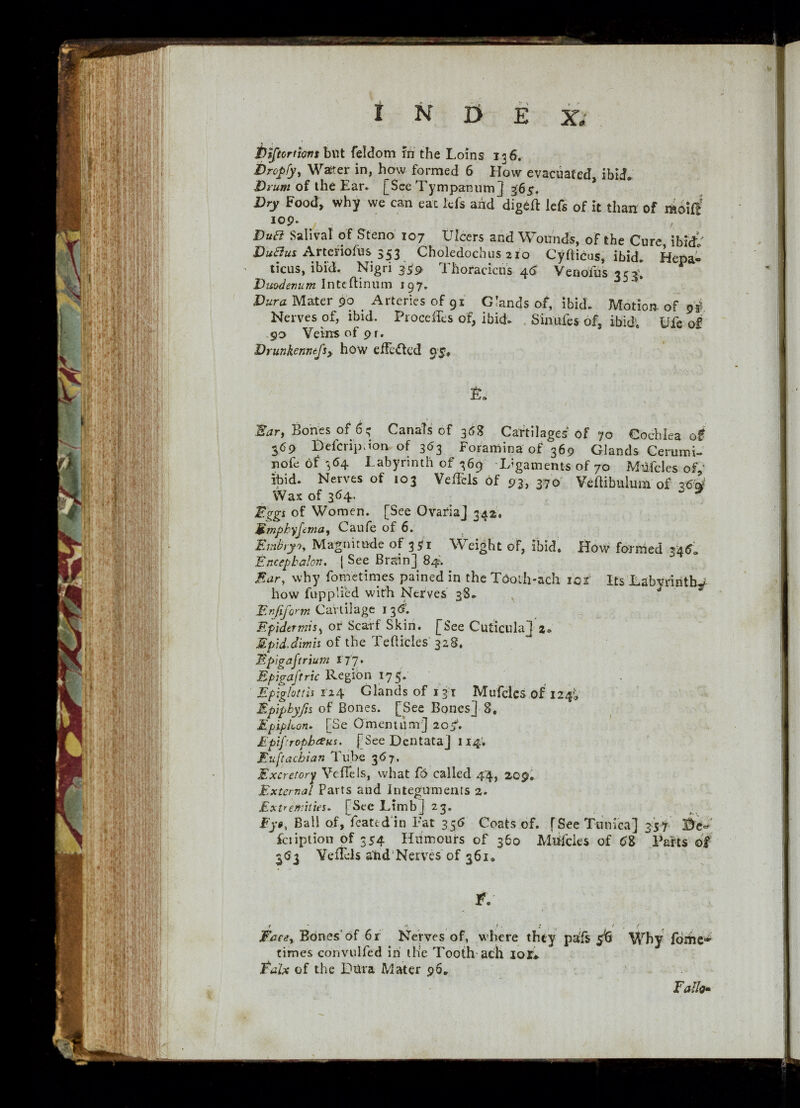 INDEX.
Diſtortions but ſeldom in the Loins 136.
Dropſy, Water in, how formed 6 How evacuated, ibid.
Drum of the Ear. [See Tympanum] 365.
Dry Food, why we can eat leſs and digeſt leſs of it than of moiſt
109.
Duct Salival of Steno 107 Ulcers and Wounds, of the Cure, ibid.
Ductus Arterioſus 353 Choledochus 210 Cyſticus, ibid. Hepa-
ticus, ibid. Nigri 359 Thoracicus 46 Venoſus 353.
Duodenum Inteſtinum 197.
Dura Mater 90 Arteries of 91 Glands of, ibid. Motion of
Nerves of, ibid. Proceſſes of, ibid. Sinuſes of, ibid. Uſe of
90 Veins of 91.
Drunkenneſs, how effected 95.
E.
Ear, Bones of 65 Canals of 368 Cartilages of 70 Cochlea of
369 Deſcription of 363 Foramina of 369 Glands Cerumi-
noſe of 364 Labyrinth of 369 Ligaments of 70 Muſcles of,
ibid. Nerves of 103 Veſſels of 93, 370 Veſtibulum of 369
Wax of 364.
Eggs of Women. [See Ovaria] 342.
Emphyſema, Cauſe of 6.
Embryo, Magnitude of 351 Weight of, ibid. How formed 346.
Encephalon. [See Brain] 84.
Ear, why ſometimes pained in the Tooth-ach 101 Its Labyrinth,
how ſupplied with Nerves 38.
Enſiform Cartilage 136.
Epidermis, or Scarf Skin. [See Cuticula] 2.
Epid.dimis of the Teſticles 328.
Epigaſtrium 177.
Epigaſtric Region 175.
Epiglottis 124 Glands of 131 Muſcles of 124.
Epiphyſis of Bones. [See Bones] 8.
Epiploon. [Se Omentum] 205.
Epiſtrophæus. [See Dentata] 114.
Euſtachian Tube 367.
Excretory Veſſels, what ſo called 44, 209.
External Parts and Integuments 2.
Extremities. [See Limb] 23.
Eye, Ball of, ſeated in Fat 356 Coats of. [See Tunica] 357 De-
ſcription of 354 Humours of 360 Muſcles of 68 Parts of
363 Veſſels and Nerves of 361.
F.
Face, Bones of 61 Nerves of, where they paſs 56 Why ſome-
times convulſed in the Tooth-ach 101.
Falx of the Dura Mater 96.
Fallo-